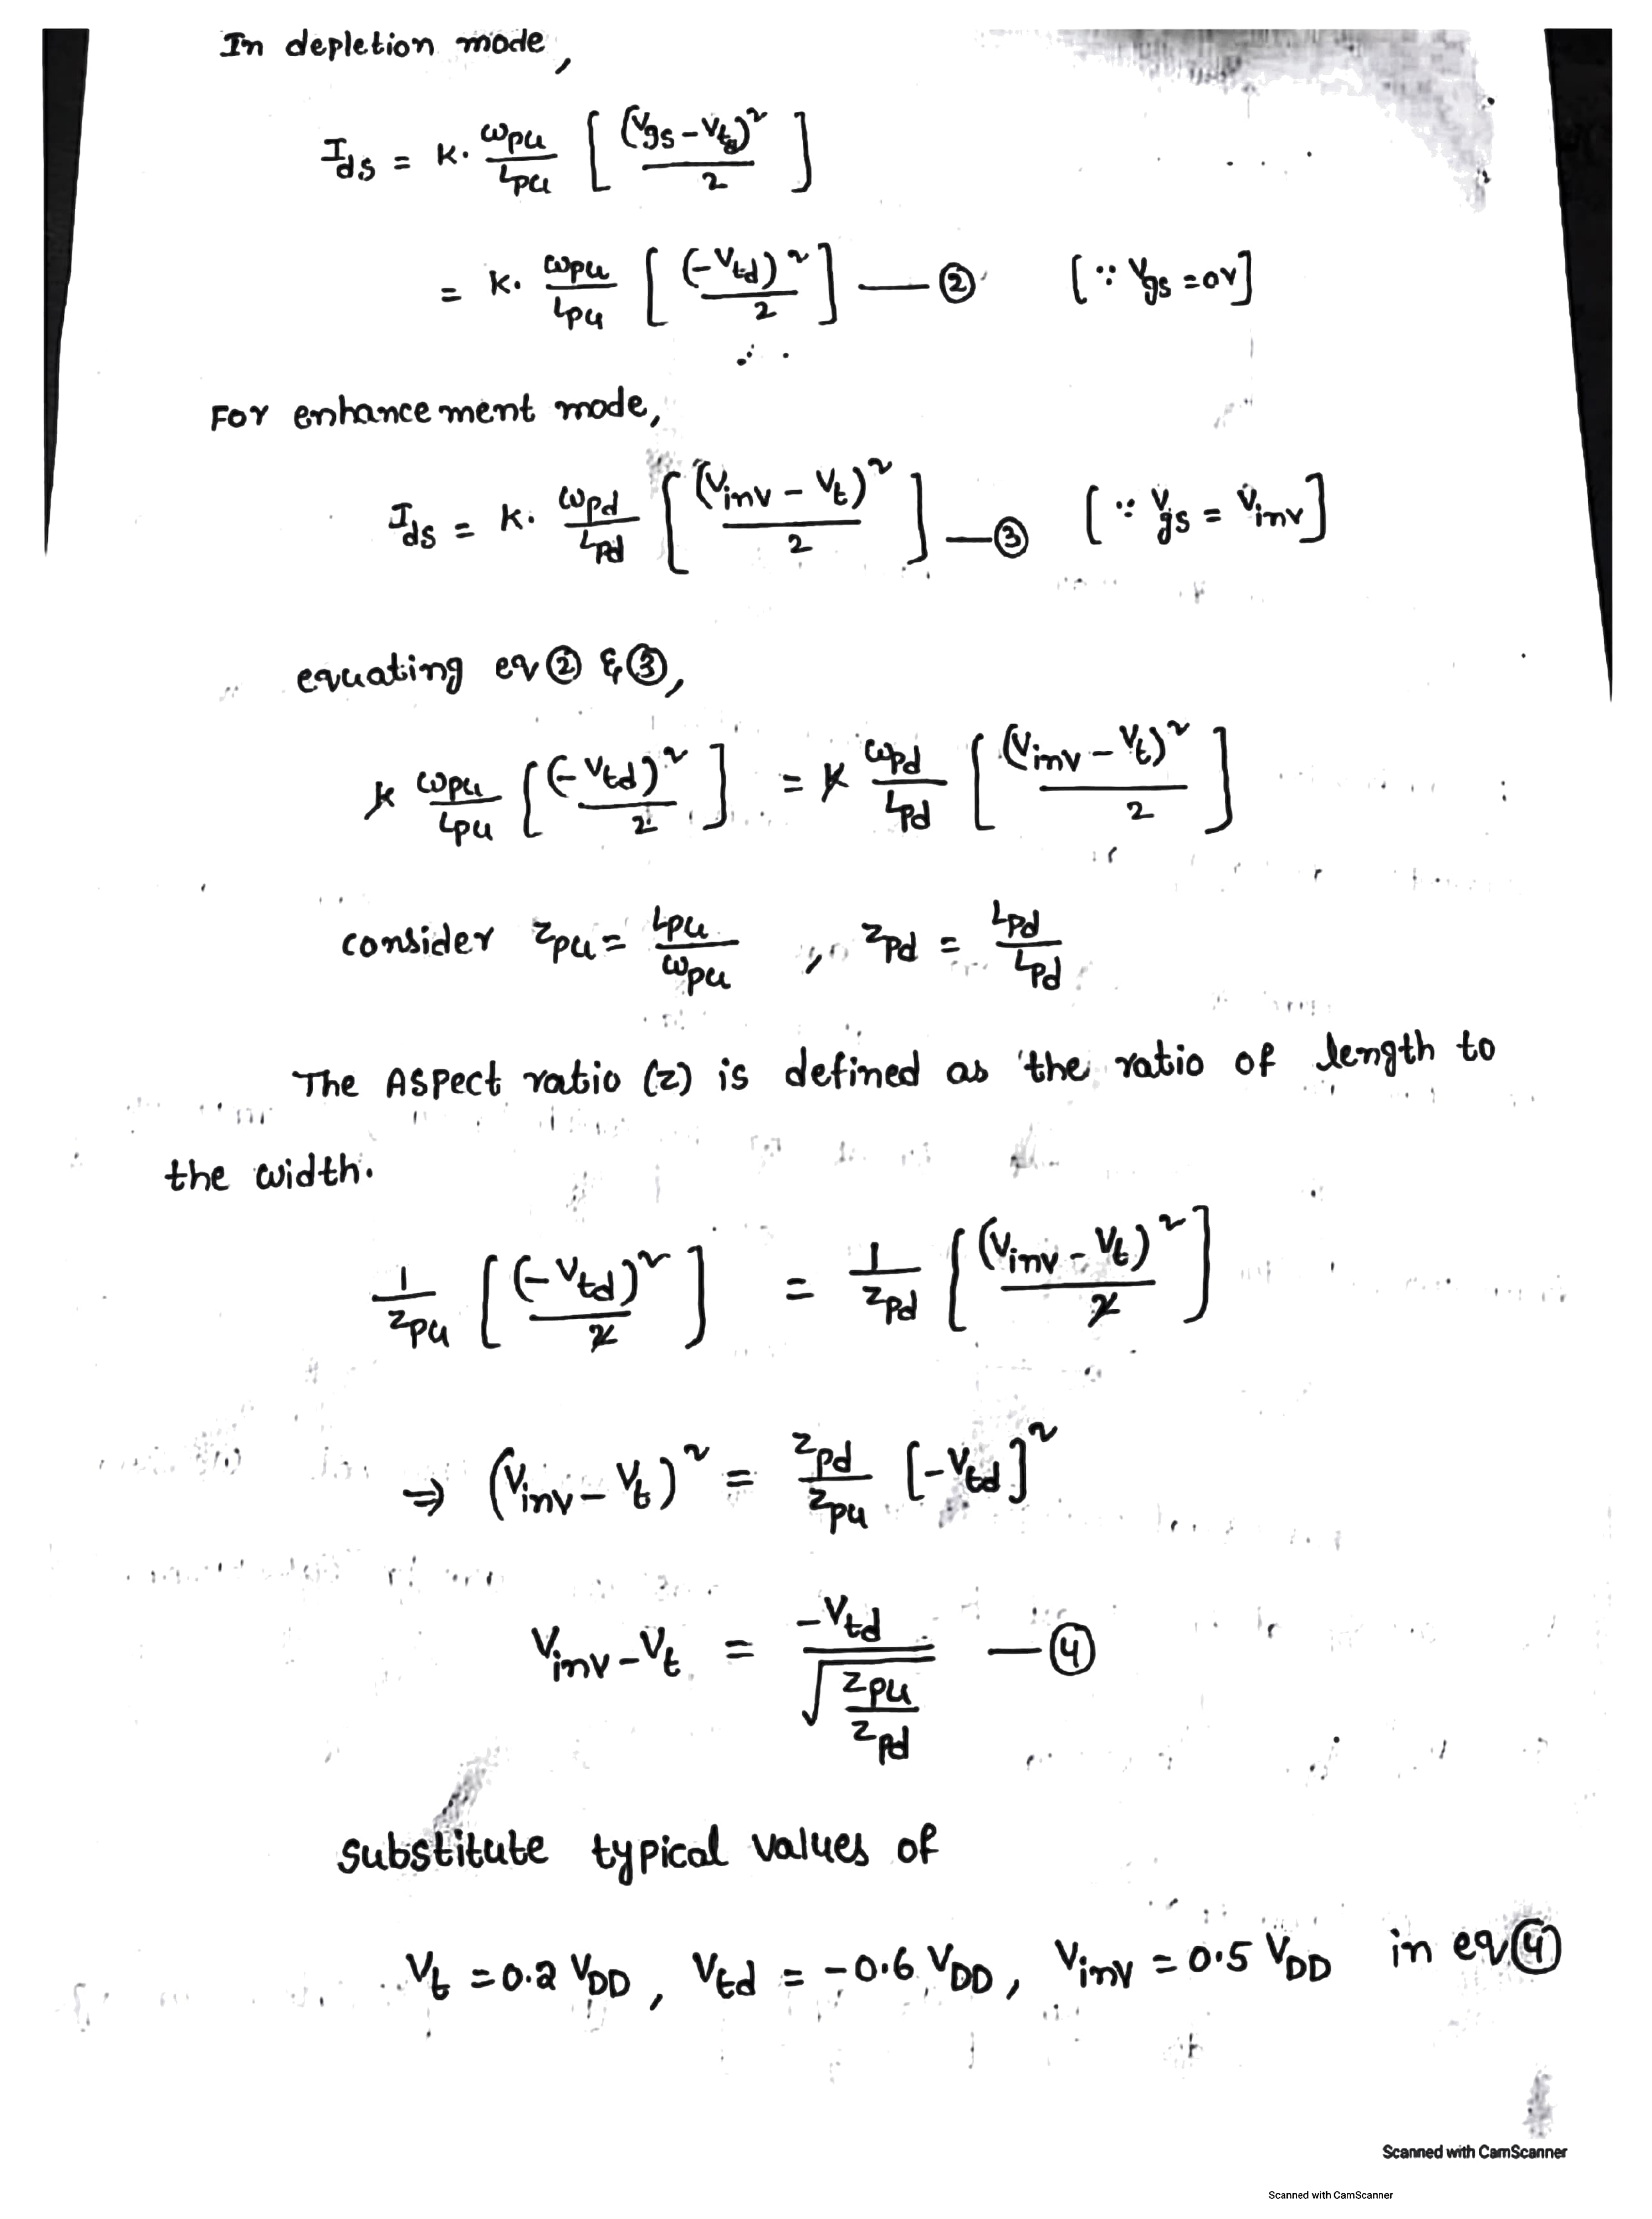 In depletion mode,
Ids = K. ωpu/Lpu [ (Vgs - Vtd)² / 2 ]
= K. ωpu/Lpu [ (-Vtd)² / 2 ] — ② [∵ Vgs = 0V]
For enhancement mode,
Ids = K. ωpd/Lpd [ (Vinv - Vt)² / 2 ] — ③ [∵ Vgs = Vinv]
equating eq ② & ③,
K ωpu/Lpu [ (-Vtd)² / 2 ] = K ωpd/Lpd [ (Vinv - Vt)² / 2 ]
consider Zpu = Lpu/ωpu , Zpd = Lpd/Lpd
The Aspect ratio (z) is defined as the ratio of length to
the width.
1/Zpu [ (-Vtd)² / 2 ] = 1/Zpd [ (Vinv - Vt)² / 2 ]
⇒ (Vinv - Vt)² = Zpd/Zpu [-Vtd]²
Vinv - Vt = -Vtd / √(Zpu/Zpd) — ④
substitute typical values of
Vt = 0.2 VDD, Vtd = -0.6 VDD, Vinv = 0.5 VDD in eq ④
Scanned with CamScanner
Scanned with CamScanner